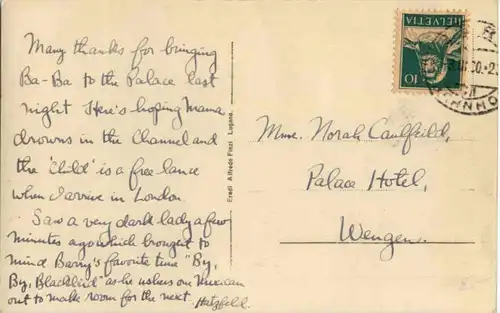 Many thanks for bringing
Ba-Ba to the Palace last
night. Here's hoping Mama
drowns in the Channel and
the 'Child' is a free lance
when I arrive in London.
Saw a very dark lady a few
minutes ago which brought to
mind Barry's favorite tune "By,
By, Blackbird" as he ushers one Mexican
out to make room for the next. Hatzfeld.
Eredi Alfredo Finzi Lugano.
HELVETIA
10
Mme. Norah Caulfeild,
Palace Hotel,
Wengen.